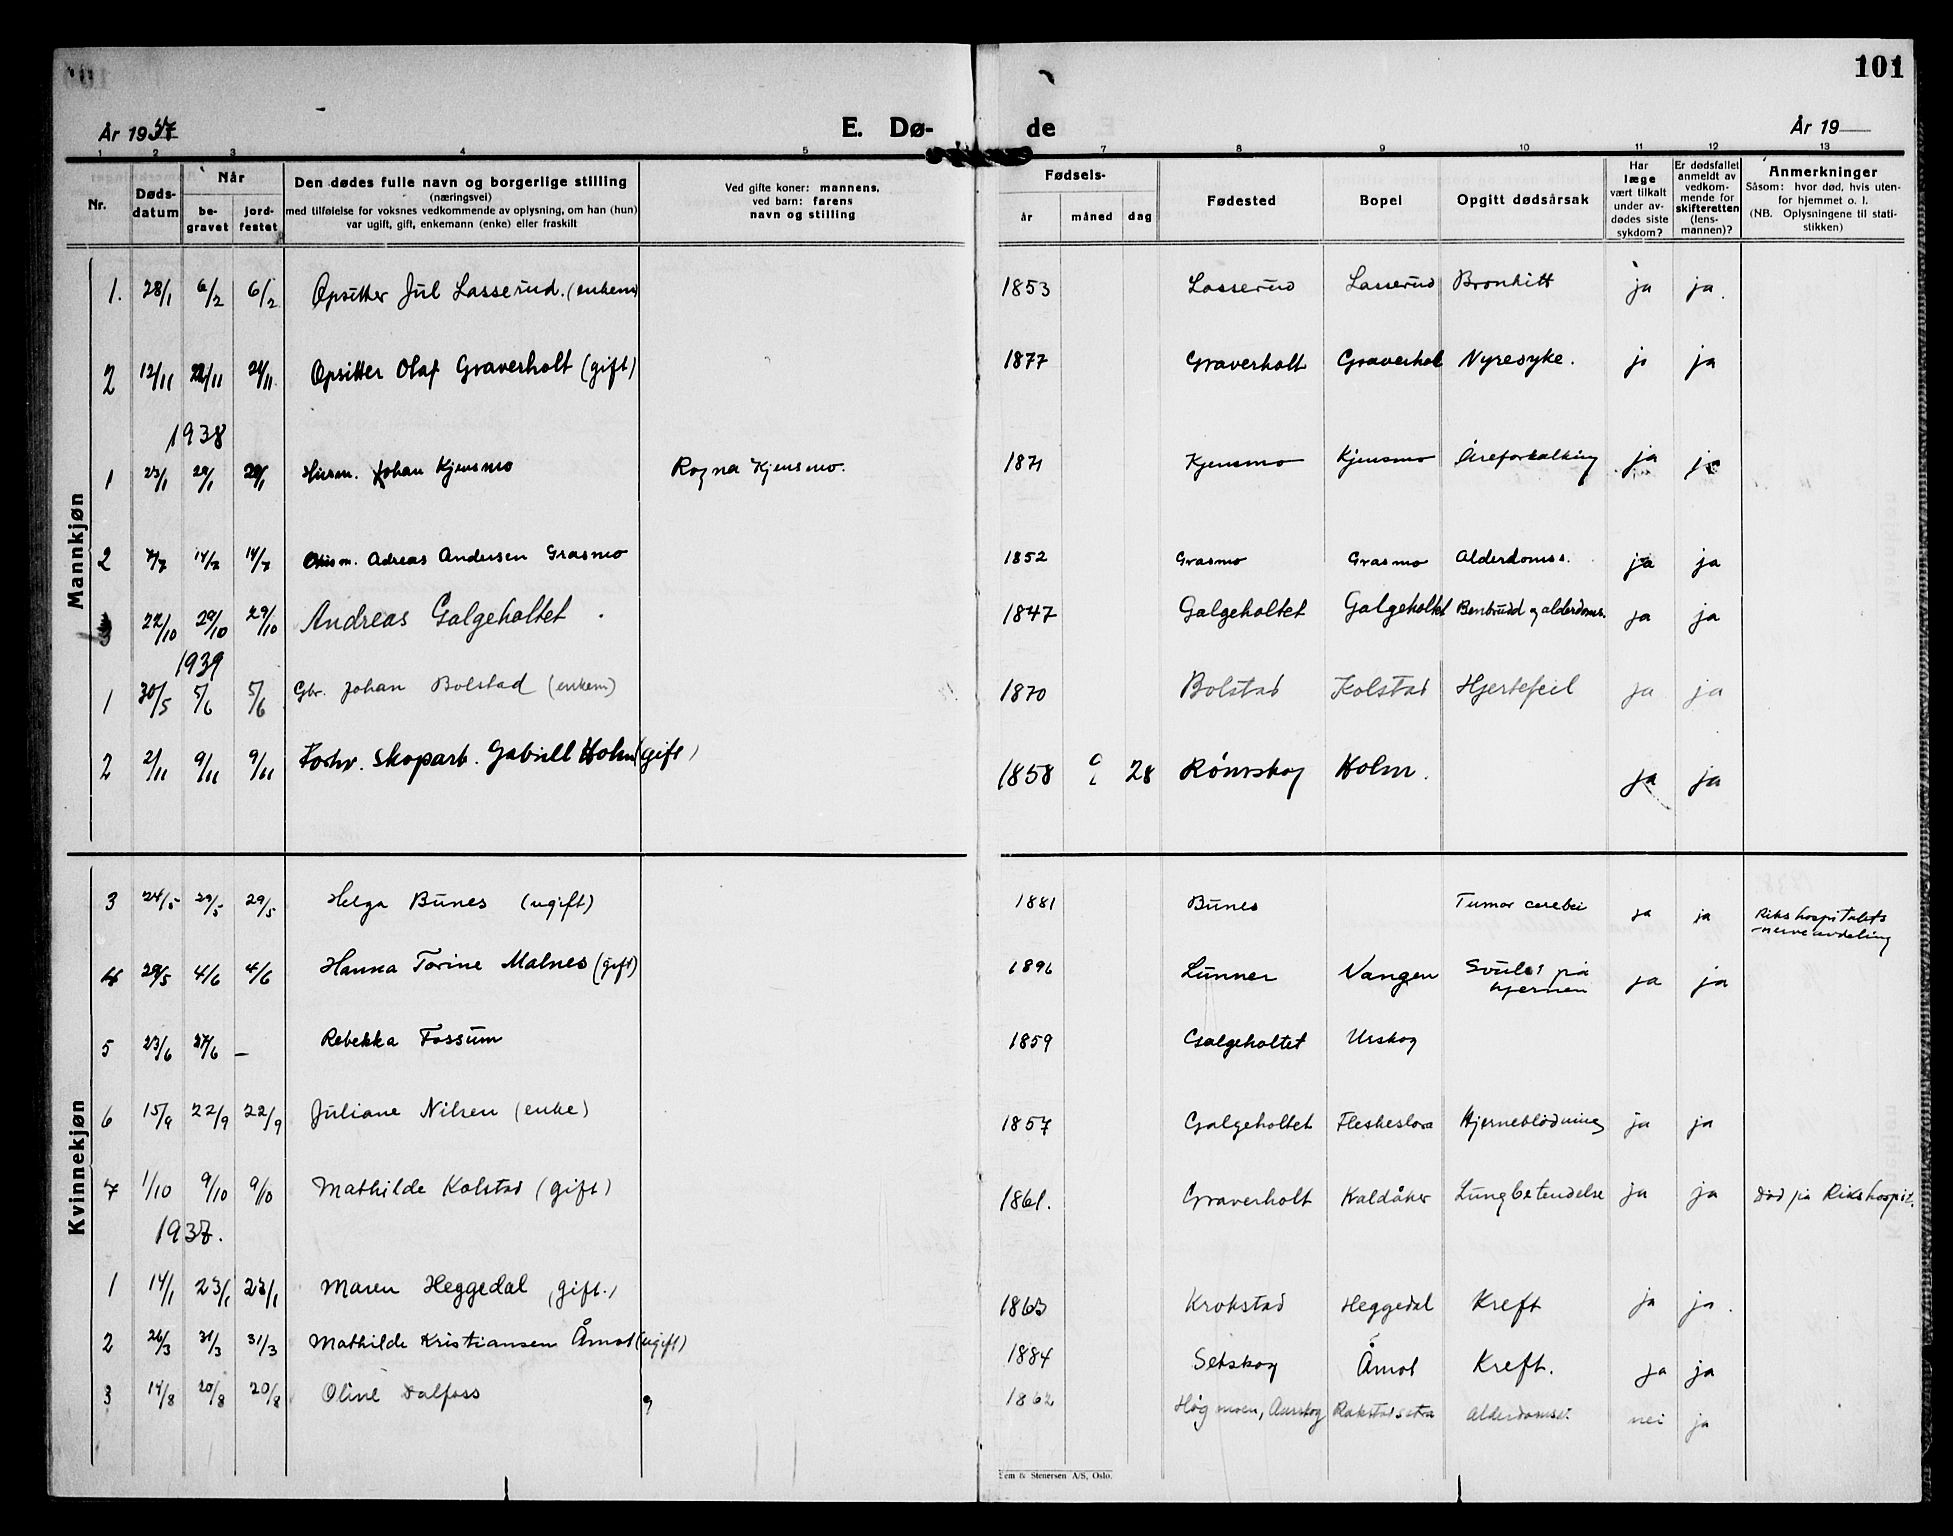 101
År 1937 E. Dø- de År 19
1 2 3 4 5 7 8 9 10 11 12 13
Nr. Døds-datum Når be-gravet jord-festet Den dødes fulle navn og borgerlige stilling (næringsvei) med tilføielse for voksnes vedkommende av oplysning, om han (hun) var ugift, gift, enkemann (enke) eller fraskilt Ved gifte koner: mannens, ved barn: farens navn og stilling Fødsels- år måned dag Fødested Bopel Opgitt dødsårsak Har læge vært tilkalt under av-dødes siste sykdom? Er dødsfallet anmeldt av vedkom-mende for skifteretten (lens-mannen)? Anmerkninger Såsom: hvor død, hvis uten-for hjemmet o. l. (NB. Oplysningene til stati-stikken)
Mannkjøn
1. 28/1 6/2 6/2 Opsitter Jul Lasserud. (enkem) 1853 Lasserud Lasserud Bronkitt ja ja.
2 12/11 22/11 24/11 Opsitter Olaf Graverholt (gift) 1877 Graverholt Graverhol Nyresyke. ja ja
1938
1 23/1 29/1 29/1 Husm. Johan Kjensmo Ragna Kjensmo. 1871 Kjensmo Kjensmo Åreforkalking ja ja
2 7/7 14/7 14/7 Adreas Andersen Grasmo 1852 Grasmo Grasmo Alderdomss. ja ja
3 22/10 29/10 29/10 Andreas Galgeholtet. 1847 Galgeholtet Galgeholtet Benbrudd og alderdoms. ja ja
1939
1 30/5 5/6 5/6 Gbr. Johan Bolstad (enkem) 1870 Bolstad Kolstad Hjertefeil ja ja
2 2/11 9/11 9/11 Forhv. skogarb. Gabriell Holm (gift) 1858 28 Rømskog Holm. ja ja
Kvinnekjøn
3 24/5 29/5 29/5 Helga Bunes (ugift) 1881 Bunes Tumor cerebei ja ja Rikshospitalets nerveavdeling
4 29/5 4/6 4/6 Hanna Torine Malnes (gift) 1896 Lunner Vangen Svulst på hjernen ja ja
5 23/6 27/6 — Rebekka Fossum 1859 Galgeholtet Urskog
6 15/9 22/9 22/9 Juliane Nilsen (enke) 1857 Galgeholtet Fleskeslora Hjerneblødning ja ja
7 1/10 9/10 9/10 Mathilde Kolstad (gift) 1861. Graverholt Kaldåker Lungbetendelse ja ja Død på Rikshospit.
1937.
1 14/1 23/1 23/1 Maren Heggedal (gift.) 1863 Krokstad Heggedal Kreft ja ja.
2 26/3 31/3 31/3 Mathilde Kristiansen Åmot (ugift) 1884 Setskog Åmot Kreft. ja ja
3 14/8 20/8 20/8 Oline Dalfoss 1862 Høgmoen, Aurskog Rakstadsetra Alderdomss. nei ja
em & Stenersen A/S, Oslo.